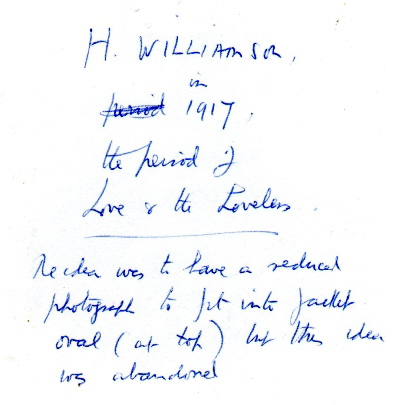 H. WILLIAMSON,
in
period 1917.
the period of
Love & the Loveless.
The idea was to have a reduced
photograph to fit into jacket
oval (at top) but this idea
was abandoned